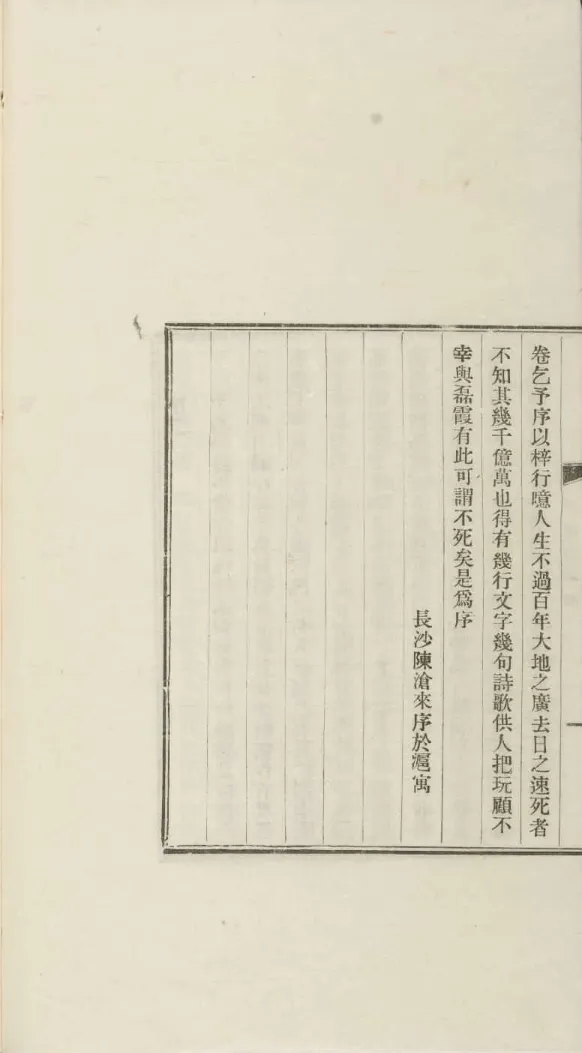 卷乞予序以梓行噫人生不過百年大地之廣去日之速死者
不知其幾千億萬也得有幾行文字幾句詩歌供人把玩顧不
幸與磊霞有此可謂不死矣是爲序
長沙陳滄來序於滬寓